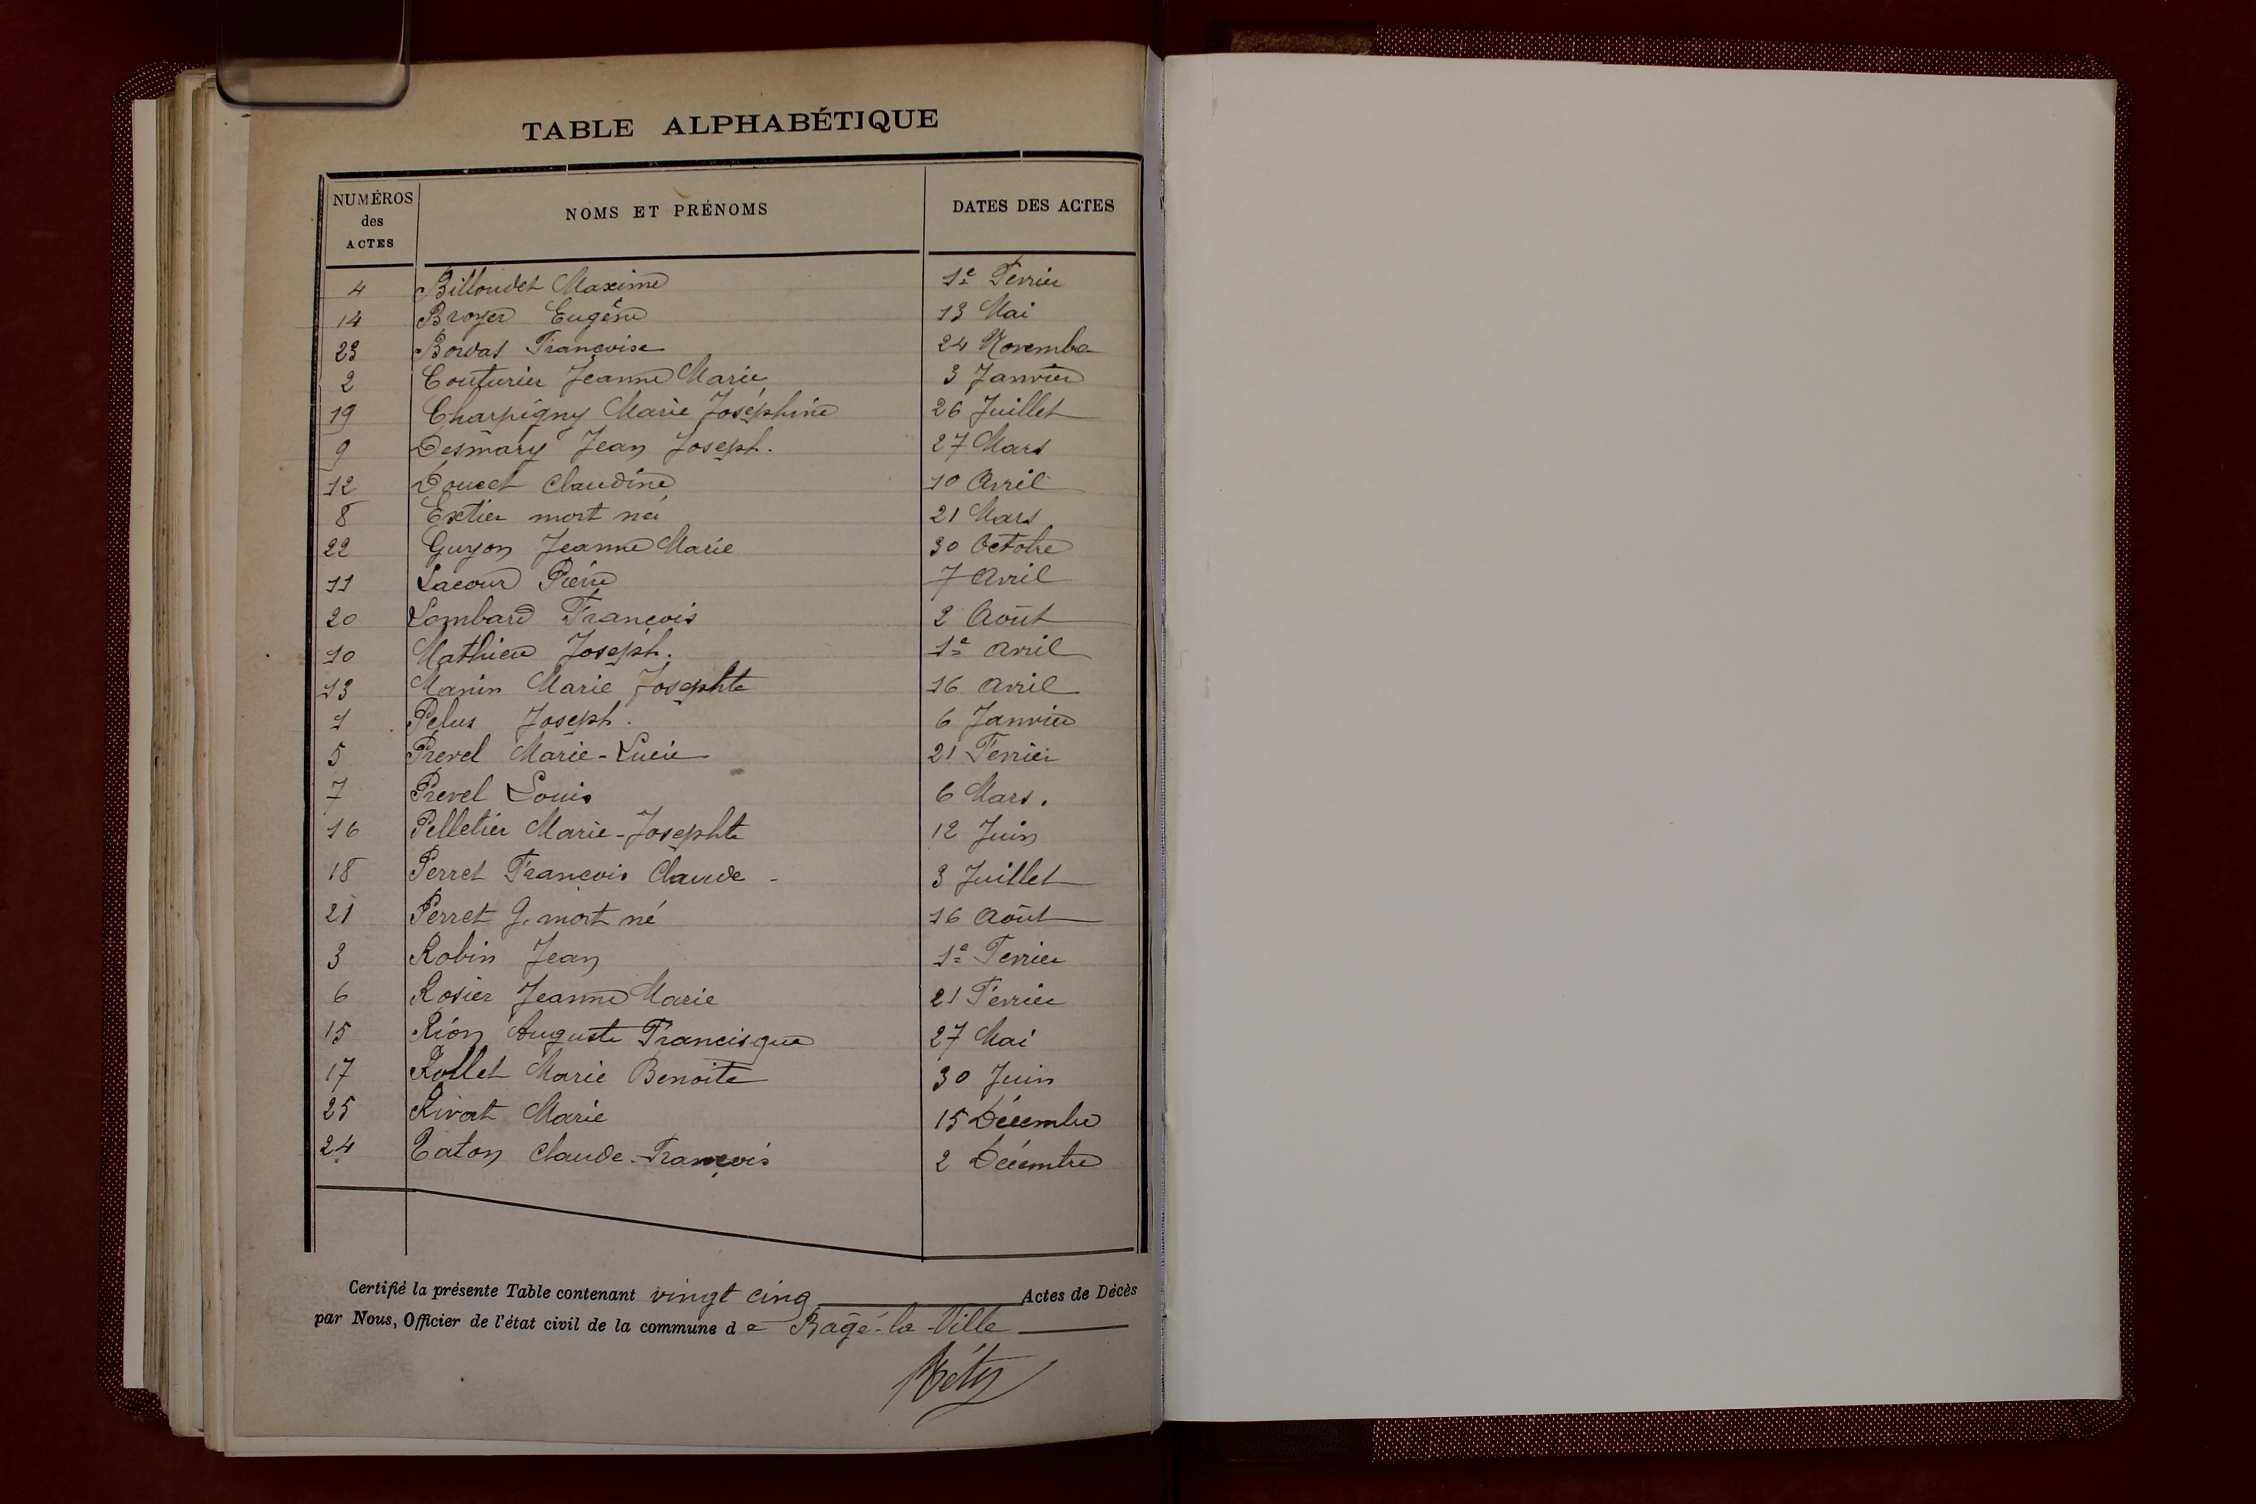 TABLE ALPHABÉTIQUE
NUMÉROS des ACTES NOMS ET PRÉNOMS DATES DES ACTES
4 Billoudet Maxime 1e Février
14 Broyer Eugène 13 Mai
23 Bordas Françoise 24 Novembre
2 Couturier Jeanne Marie 3 Janvier
19 Charpigny Marie Joséphine 26 Juillet
9 Desmary Jean Joseph. 27 Mars
12 Doucet Claudine 10 Avril
8 Extier mort né 21 Mars
22 Guyon Jeanne Marie 30 Octobre
11 Lacour Pierre 7 Avril
20 Lombard François 2 Août
10 Mathieu Joseph. 1e Avril
13 Manin Marie Josephte 16 Avril
1 Pelus Joseph. 6 Janvier
5 Prevel Marie-Lucie 21 Février
7 Prevel Louis 6 Mars.
16 Pelletier Marie-Josephte 12 Juin
18 Perret François Claude - 3 Juillet
21 Perret G. mort né 16 Août
3 Robin Jean 1e Février
6 Rosier Jeanne Marie 21 Février
15 Rion Auguste Francisque 27 Mai
17 Rollet Marie Benoite 30 Juin
25 Rivat Marie 15 Décembre
24 Taton Claude-François 2 Décembre
Certifié la présente Table contenant vingt cinq Actes de Décès
par Nous, Officier de l'état civil de la commune de Bagé-la-Ville